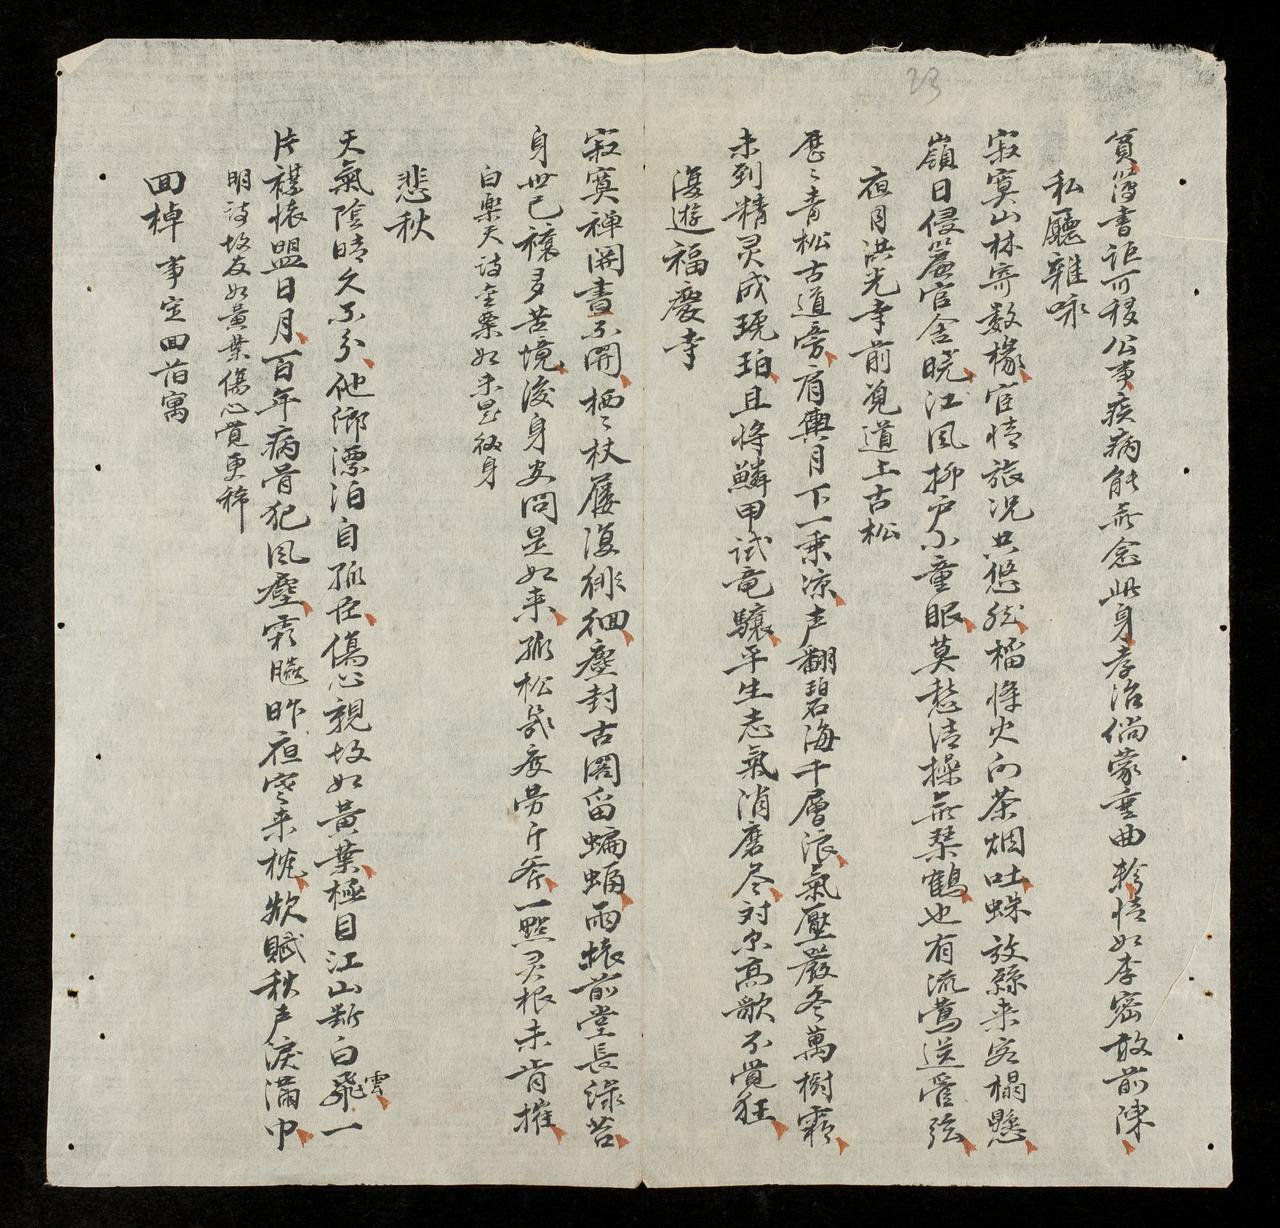 23
貧簿書詎可移公事疾病能無念此身孝治倘蒙垂曲軫情如李密敢前陳
私廳雜咏
寂寞山林寄数椽宦情旅况共悠然榴將火向茶烟吐蛛放絲来客榻懸
嶺日侵簷官舍曉江風抑戶小童眠莫愁清操無琴鶴也有流鶯送管弦
夜月洪光寺前覓道上古松
歷〻青松古道旁肩輿月下一乘凉声翻碧海千層浪氣壓嚴冬萬樹霜
未到精灵成琥珀且將鱗甲試竜驤平生志氣消磨尽对尔高歌不覺狂
復遊福慶寺
寂寞禅関晝不開栖〻杖屨復徘徊塵封古閣留蝙蝠雨怅前堂長渌苔
身世已禳多苦境後身安問是如来孤松㡬度労斤斧一點灵根未肯摧
白樂天詩金粟如来是後身
悲秋
天氣陰晴久不分他鄉漂泊自孤臣傷心親故如黃葉極目江山斷白飛雲一
片襟懷盟日月百年病骨犯風塵霜臨昨夜寒来枕欲賦秋声淚滿巾
明詩故友如黃葉傷心覚更稀
回棹 事定回萡寓